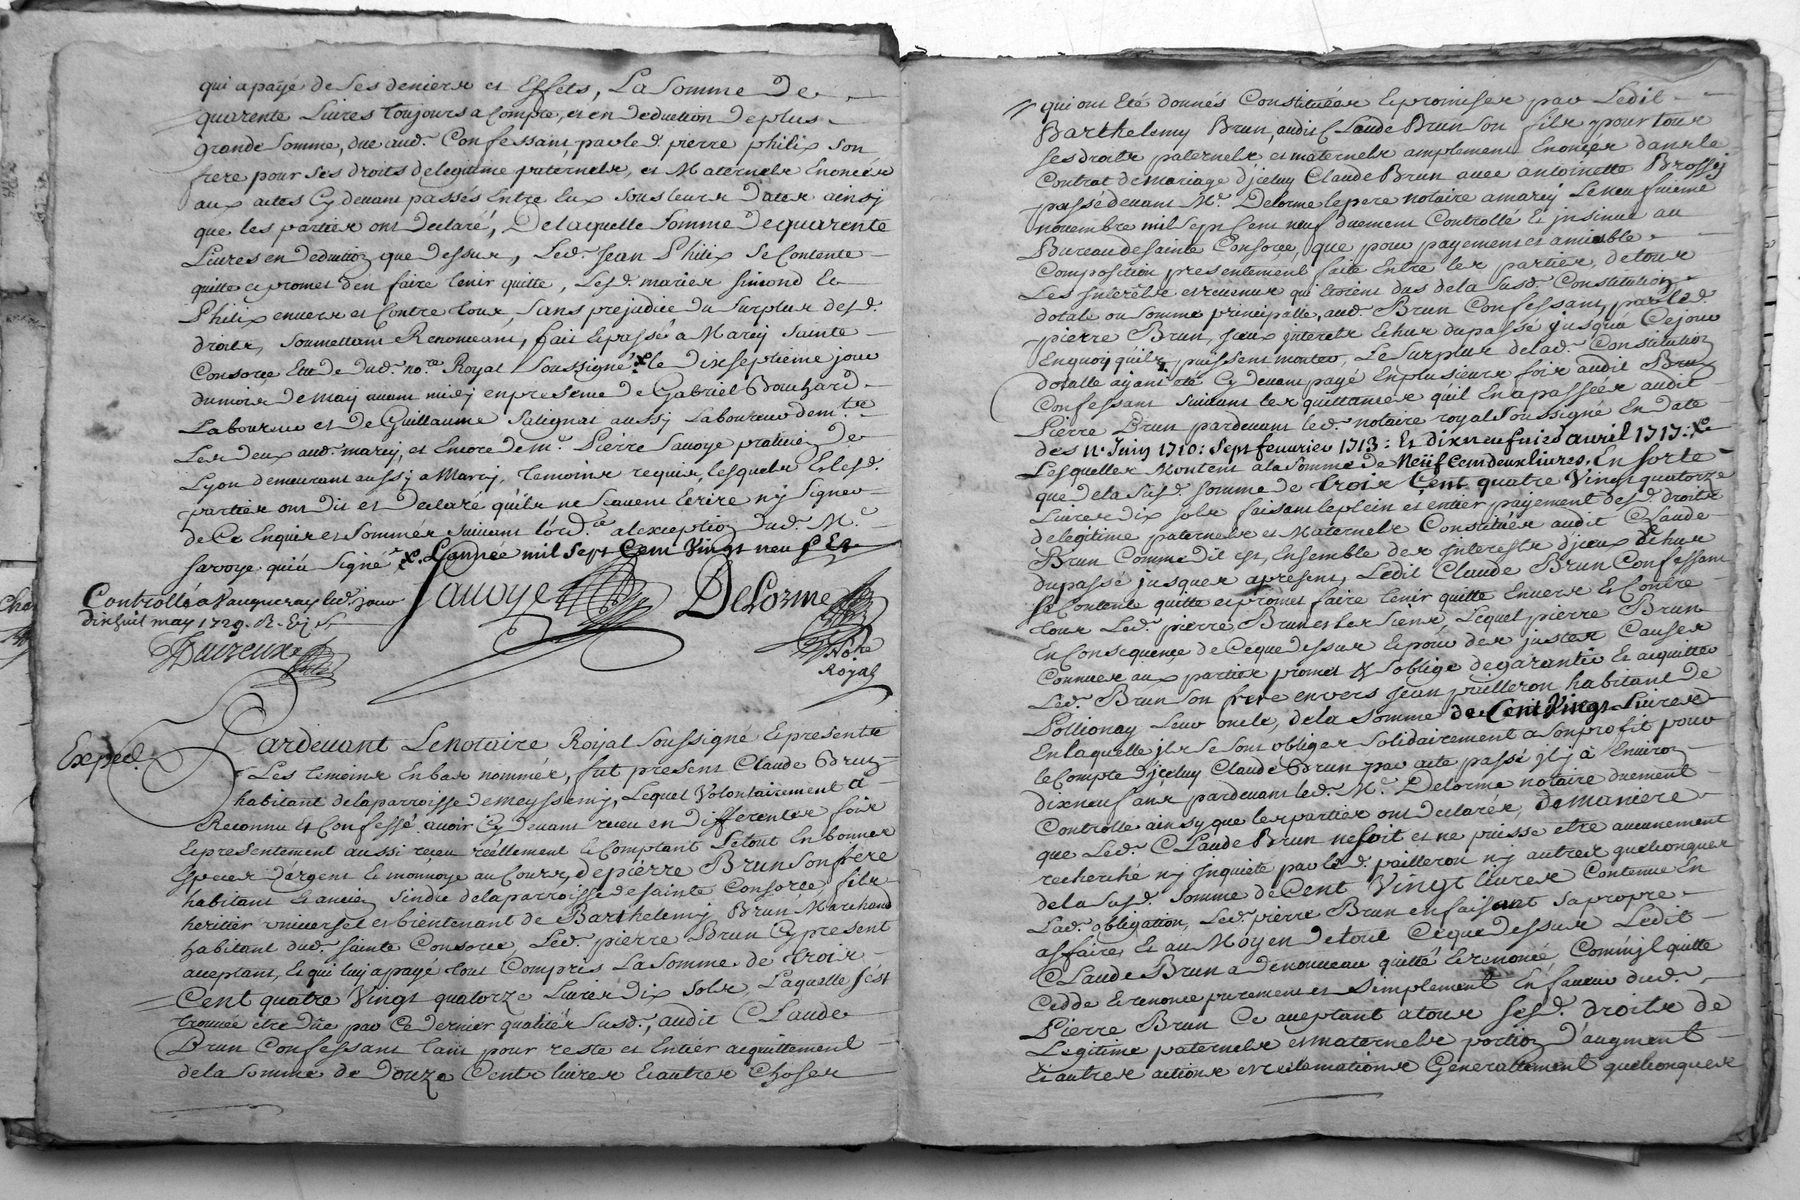 qui a payé de ses deniers et Effets, La somme De
quarente Livres toujours a Compte, et en deduction deplus
grande somme, due aud. Confessant, par led. pierre philix son
frere pour ses droits delegitime paternels, et Maternels Enoncés
aux actes Cy devant passés Entre Eux sous leurs Dates ainsy
que les parties ont Declaré, Delaquelle somme Dequarente
Livres en deduction que dessus, Led. Jean Philix se Contente
quitte et promet d'en faire tenir quitte, Lesd. mariés simond et
Philix envers et Contre tous, sans prejudice du surplus desd.
droits, soumettant Renonceant, fait et passé a Marcy sainte
Consorce Etude dud. no.re Royal soussigné le dixseptieme jour
dumois de may avant midy en presence de Gabriel Bouchard
Laboureur et de Guillaume Salignat aussy Laboureur dem.ts
Les deux aud. marcy, et Encore de m.e Pierre savoye praticien de
Lyon demeurant aussy a Marcy, temoins requis, lesquels et lesd.
parties ont dit et Declaré qu'ils ne scavent Ecrire n'y signer
de Ce Enquis et sommés suivant l'ord.ce a l'exception dud. M.e
savoye qui a signé L'année mil sept Cent Vingt neuf Et
Controllé a Vaugneray led. jour
dixhuit may 1729. R.
Savoye
DeLorme
No.re
Royal
Exped.
Pardevant Le notaire Royal soussigné Et presents
Les temoins En bas nommés, fut present Claude Brun
habitant delaparroisse de meyssemy, Lequel Volontairement a
Reconnu et Confessé avoir Cy devant receu en differentes fois
Et presentement aussi receu réellement et Comptant Letout En bonnes
Especes d'argent et monnoye au Cours, de pierre Brun son frère
habitant et ancien sindic delaparroisse de sainte Consorce, fils
heritier universel et bientenant de Barthelemy Brun Marchand
habitant dud. sainte Consorce, Led. pierre Brun Cy present
acceptant, et qui luy a payé tout Compris La somme de trois
Cent quatre Vingt quatorze Livres dix sols, Laquelle s'est
trouvée être düe par Ce dernier qualités susd., audit Claude
Brun Confessant tant pour reste et Entier acquittement
dela somme de Douze Cents livres et autres Choses
qui ont Eté donnés Constitués et promises par Ledit
Barthelemy Brun, audit Claude Brun son fils pour tous
ses droits paternels et maternels amplement Enoncés dans le
Contrat de mariage d'jceluy Claude Brun avec antoinette Brossy
passé devant M.e Delorme le pere notaire a marcy Le neufvieme
novembre mil sept Cent neuf duement Controllé et jnsinué au
Bureau de sainte Consorce, que pour payement et amiable
Composition presentement faite Entre les parties, de tous
Les jnterêts et revenus qui Etoient dus de la susd. Constitution
dotale ou somme principalle, aud. Brun Confessant, par led.
pierre Brun, jceux jnterets Echus du passé jusqu'a Cejour
En quoy qu'ils puissent monter, Le surplus delad. Constitution
dotalle ayant été Cy devant payé En plusieurs fois audit Brun
Confessant suivant les quittances qu'il En a passées audit
Pierre Brun pardevant led. notaire royal soussigné En date
des 11e Juin 1710: sept fevrier 1713: Et dixneufvies avril 1717:
Lesquelles Montent a la somme de Neuf Cent deux livres, En sorte
que de la susd. somme de trois Cent quatre Vingt quatorze
Livres dix sols faisant le plein et entier payement desd. droits
de légitime paternels et Maternels Constitués audit Claude
Brun Comme dit est, Ensemble des jnterests d'jceux Echus
du passé jusques apresent, Ledit Claude Brun Confessant
se Contente quitte et promet faire tenir quitte Envers et Contre
tous Led. pierre Brun et les siens, Lequel pierre Brun
En Consequence de Ceque dessus et pour des justes Causes
Connues aux parties promet et s'oblige de garantir et acquitter
Led. Brun son frere envers Jean pailleron habitant de
Pollionay Leur oncle, de la somme de Cent Vingt Livres
En laquelle jls se sont obligés solidairement a son profit pour
le Compte d'jceluy Claude Brun par acte passé jl y a Environ
dixneuf ans pardevant led. M.e Delorme notaire duement
Controllé ainsy que les parties ont declaré, de maniere
que Led. Claude Brun ne soit et ne puisse etre aucunement
recherché n'y jnquieté par le d. pailleron n'y autres quelconques
de la susd. somme de Cent Vingt livres Contenue En
Lad. obligation, Led. pierre Brun en faisant sa propre
affaire, Et au Moyen de tout Ceque dessus Ledit
Claude Brun a de nouveau quitté et renoncé, Comm'jl quitte
Cedde et renonce purement et simplement En faveur dud.
Pierre Brun Ce acceptant a tous sesd. droits de
Legitime paternels et maternels portion d'augment
Et autres actions et reclamations Generallement quelconques